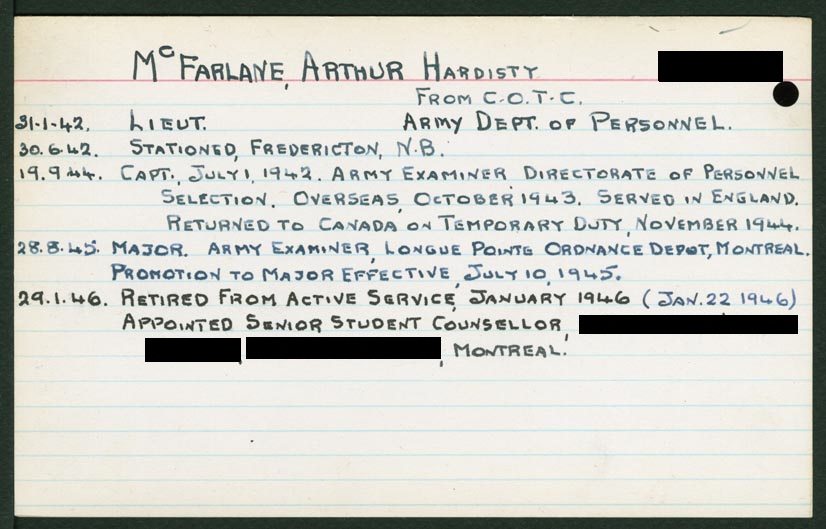 McFARLANE, ARTHUR HARDISTY
FROM C.O.T.C.
31.1.42. LIEUT. ARMY DEPT. OF PERSONNEL.
30.6.42. STATIONED, FREDERICTON, N.B.
19.9.44. CAPT., JULY 1, 1942. ARMY EXAMINER DIRECTORATE OF PERSONNEL
SELECTION. OVERSEAS, OCTOBER 1943. SERVED IN ENGLAND.
RETURNED TO CANADA ON TEMPORARY DUTY, NOVEMBER 1944.
28.8.45. MAJOR. ARMY EXAMINER, LONGUE POINTE ORDNANCE DEPOT, MONTREAL.
PROMOTION TO MAJOR EFFECTIVE, JULY 10, 1945.
29.1.46. RETIRED FROM ACTIVE SERVICE, JANUARY 1946 (JAN. 22 1946)
APPOINTED SENIOR STUDENT COUNSELLOR,
, , MONTREAL.